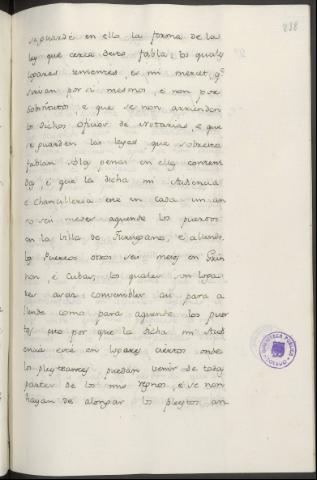 238
se guarde en ello la forma de la
ley que cerca desto fabla; los quales
logares tenientes, es mi merced, q.e
sirvan por si mesmos, e non por
sobstitutos, e que se non arrienden
los dichos oficios de Notarias, e que
se guarden las leyes que sobresto
fablan so las penas en ellas conteni
das, é que la dicha mi Audiencia
é Chancilleria este en cada un an
no seis meses aquende los puertos
en la Villa de Turuegano, é allende
los Puertos otros seis meses en Griñ
non, é Cubas, los quales son loga
res asaz convenibles asi para a
llende como para aquende los puer
tos, esto por que la dicha mi Aud
encia esté en logares ciertos onde
los pleyteantes puedan venir de todas
partes de los mis regnos, é se non
hayan de alongar los pleytos an